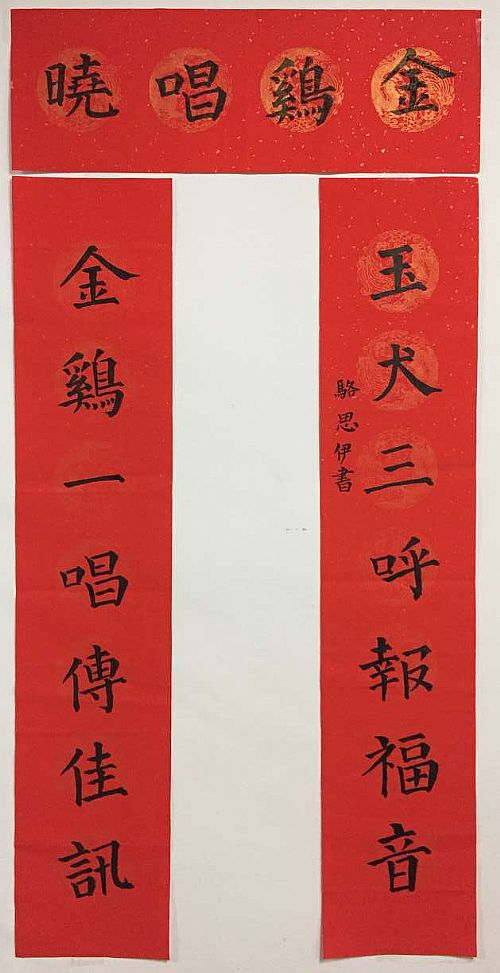 金鷄唱曉
玉犬三呼報福音
駱思伊書
金鷄一唱傳佳訊